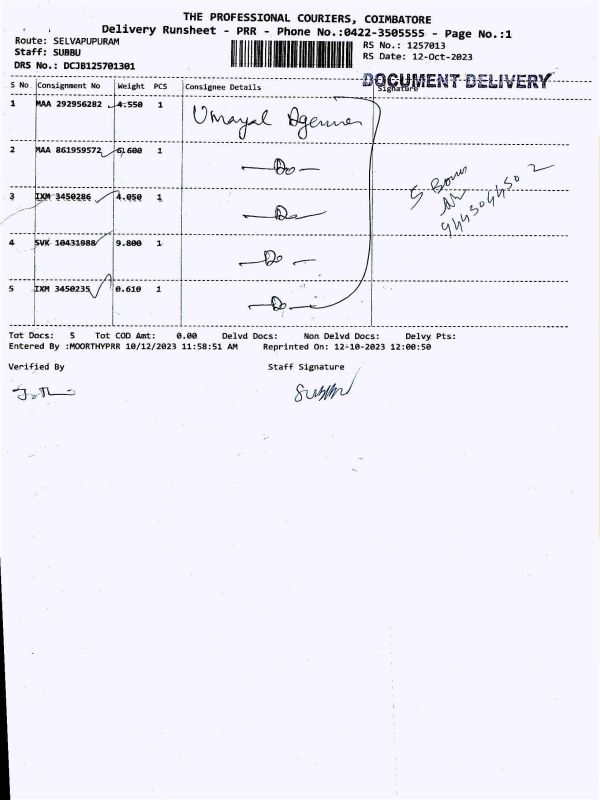 THE PROFESSIONAL COURIERS, COIMBATORE
Delivery Runsheet - PRR - Phone No.:0422-3505555 - Page No.:1
Route: SELVAPUPURAM
Staff: SUBBU
DRS No.: DCJB125701301
RS No.: 1257013
RS Date: 12-Oct-2023
DOCUMENT DELIVERY
S No Consignment No Weight PCS Consignee Details Signature
1 MAA 292956282 4.550 1 Umayal Agencies
2 MAA 861959572 6.600 1 -Do-
3 IXM 3450286 4.050 1 -Do-
4 SVK 10431988 9.800 1 -Do-
5 IXM 3450235 0.610 1 -Do-
5 Boxes
Tot Docs: 5 Tot COD Amt: 0.00 Delvd Docs: Non Delvd Docs: Delvy Pts:
Entered By :MOORTHYPRR 10/12/2023 11:58:51 AM Reprinted On: 12-10-2023 12:00:50
Verified By Staff Signature
Subbu